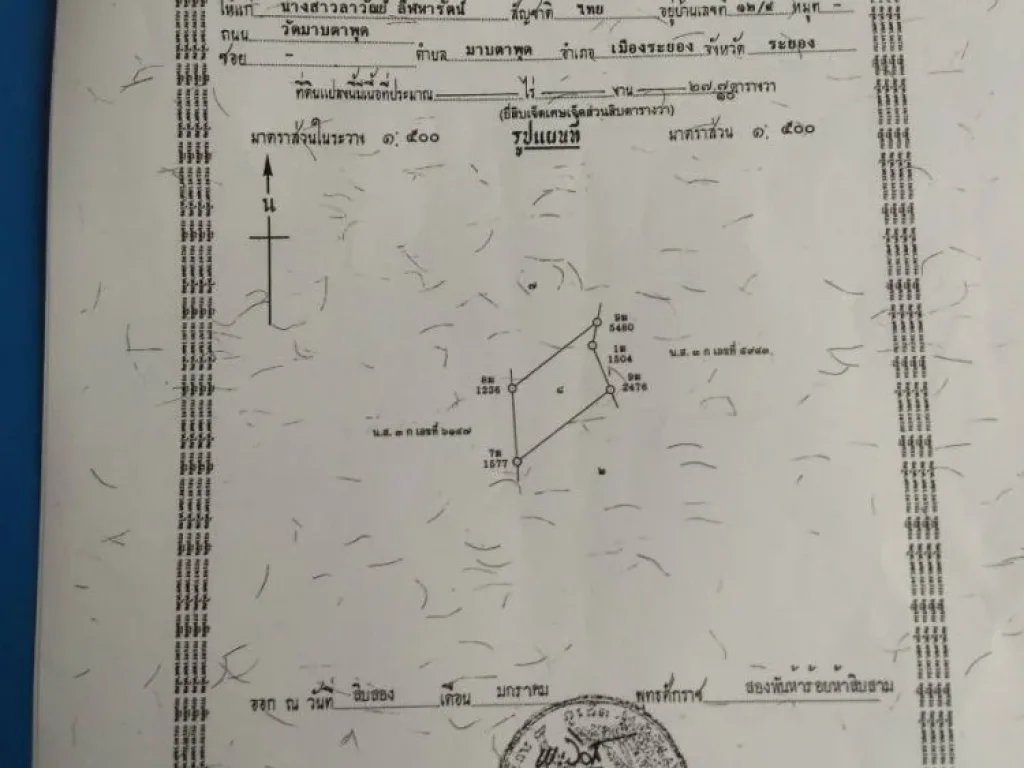 ให้แก่ นางสาวลาวัณย์ ลีหหารัตน์ สัญชาติ ไทย อยู่บ้านเลขที่ ๑๒/๕ หมู่ที่ -
ถนน วัดมาบตาพุด
ซอย - ตำบล มาบตาพุด อำเภอ เมืองระยอง จังหวัด ระยอง
ที่ดินแปลงนี้มีเนื้อที่ประมาณ ไร่ งาน ๒๗ ๗/๑๐ ตารางวา
(ยี่สิบเจ็ดเศษเจ็ดส่วนสิบตารางวา)
มาตราส่วนในระวาง ๑: ๕๐๐ รูปแผนที่ มาตราส่วน ๑: ๕๐๐
น
๗
9ม
5460
1ม
1504
น.ส. ๓ ก เลขที่ ๕๙๔๓
8ม
1236
๔
9ม
2476
น.ส. ๓ ก เลขที่ ๖๑๔๗
7ม
1577
๒
ออก ณ วันที่ สิบสอง เดือน มกราคม พุทธศักราช สองพันห้าร้อยห้าสิบสาม